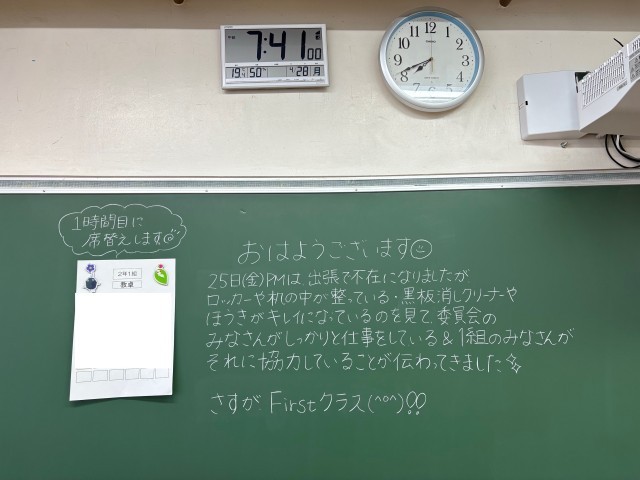 7:41 00
19.4 50% 4 28 月
12
1
2
3
4
5
6
7
8
9
10
11
1時間目に
席替えします
2年1組
教卓
おはようございます
25日(金)PMは、出張で不在になりましたが
ロッカーや机の中が整っている・黒板消しクリーナーや
ほうきがキレイになっているのを見て、委員会の
みなさんがしっかりと仕事をしている&1組のみなさんが
それに協力していることが伝わってきました
さすが Firstクラス(^o^)!!